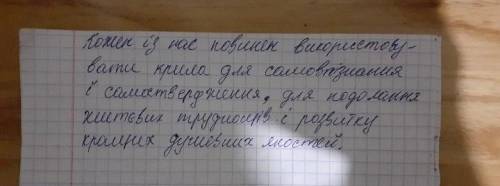 Кожен із нас повинен використову-
вати крила для самовпізнання
і самоствердження, для подолання
життєвих труднощів і розвитку
кращих душевних якостей.